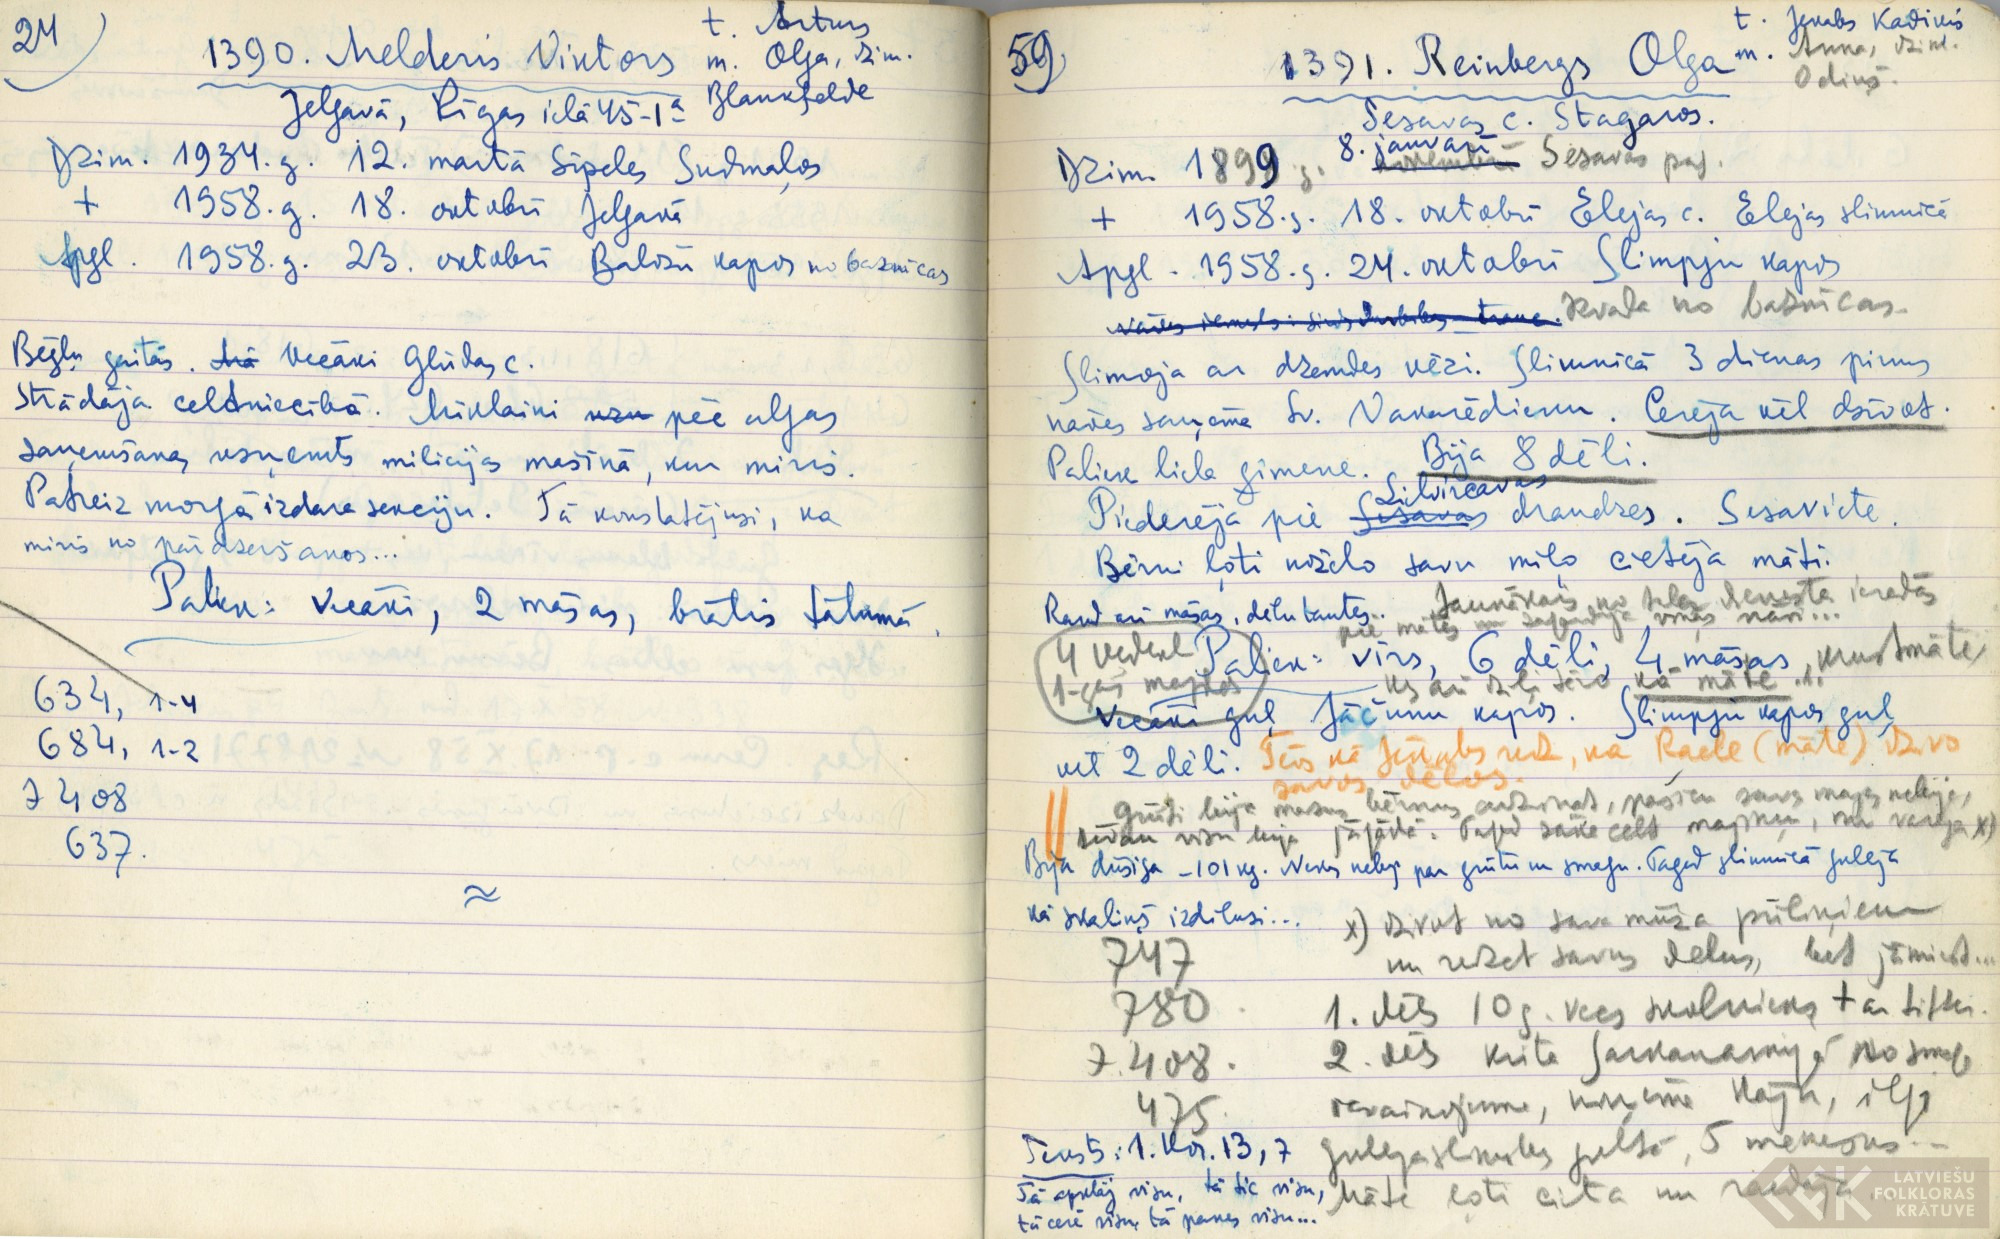 24
1390. Melderis Viktors
t. Arturs
m. Olga, dzim.
Blankfelde
Jelgavā, Rīgas ielā 45-1a
Dzim. 1934. g. 12. martā Sīpeles Sudmaļos
+ 1958. g. 18. oktobrī Jelgavā
Apgl. 1958. g. 23. oktobrī Baložu kapos no baznīcas
Bēgļu gaitās. Vecāki Glūdas c.
Strādāja celtniecībā. pēc algas
saņemšanas uzņemts milicijas mašīnā, kur miris.
Patreiz morgā izdara sekciju. Tā konstatējusi, ka
miris no pārdzeršanos...
Paliek: vecāki, 2 māsas, brālis tālumā.
634, 1-4
684, 1-2
7408
637.
≈
59
1391. Reinbergs Olga
t. Jekabs Kadiķis
m. Anna, dzim.
Odiņš.
Sesavas c. Stagaros.
Dzim. 1899 g. 8. janvarī Sesavas pag.
+ 1958. g. 18. oktobrī Elejas c. Elejas slimnīcā
Apgl. 1958. g. 24. oktobrī Slimpju kapos
Izvada no baznīcas.
Slimoja ar dzemdes vēzi. Slimnīcā 3 dienas pirms
nāves saņēma Sv. Vakarēdienu. Cerēja vēl dzīvot.
Paliek liela ģimene. Bija 8 dēli.
Piederēja pie Sesavas Lielvircavas draudzes. Sesaviete.
Bērni ļoti nožēlo savu mīļo cietēja māti.
Raud arī māsas, dēlu tantes..
Jaunākais no dienesta ieradās
pie mātes un viņas nāvi...
4 vedekl
1-gās mazdēls
Paliek: vīrs, 6 dēli, 4 māsas, krustmāte,
kas arī dziļi sēro kā māte...
Vecāki guļ Jāčūnu kapos. Slimpju kapos guļ
vēl 2 dēli. Tēvs kā Jēkabs redz, ka Raele (māte) dzīvo
savos dēlos.
Grūti bija mazus bērnus audzināt, pašiem savas mājas nebija,
bija jāgādā. Tagad sāka celt mājiņu, nu varēja x)
Bija dūšīga - 101 kg. Nekas nebij par grūtu un smagu. Tagad slimnīcā gulēja
kā skaliņš izdilusi...
x) dzīvot no sava mūža pūliņiem
un redzēt savus dēlus, bet jāmirst...
747
780.
7.408.
475.
1. dēls 10 g. vecs skolnieks + ar tīfu.
2. dēls krita Sarkanarmijā no smaga
ievainojuma, noņēma kāju, ilgi
gulēja slimības gultā, 5 mēnešus...
Māte ļoti cieta un raudāja
Teksts: 1. Kor. 13, 7
Tā apklāj visu, tā tic visu,
tā cerē visu, tā panes visu...
LATVIEŠU
FOLKLORAS
KRĀTUVE